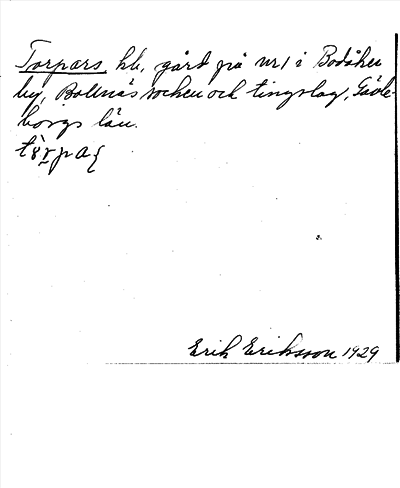 Torpars, hb, gård på nr 1 i Bodåker
by, Bollnäs socken och tingslag, Gävle-
borgs län.
Erik Eriksson 1929